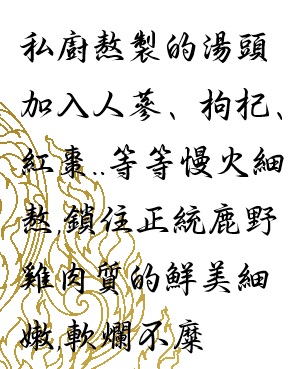 私廚熬製的湯頭
加入人蔘、枸杞、
紅棗..等等慢火細
熬,鎖住正統鹿野
雞肉質的鮮美細
嫩,軟爛不糜